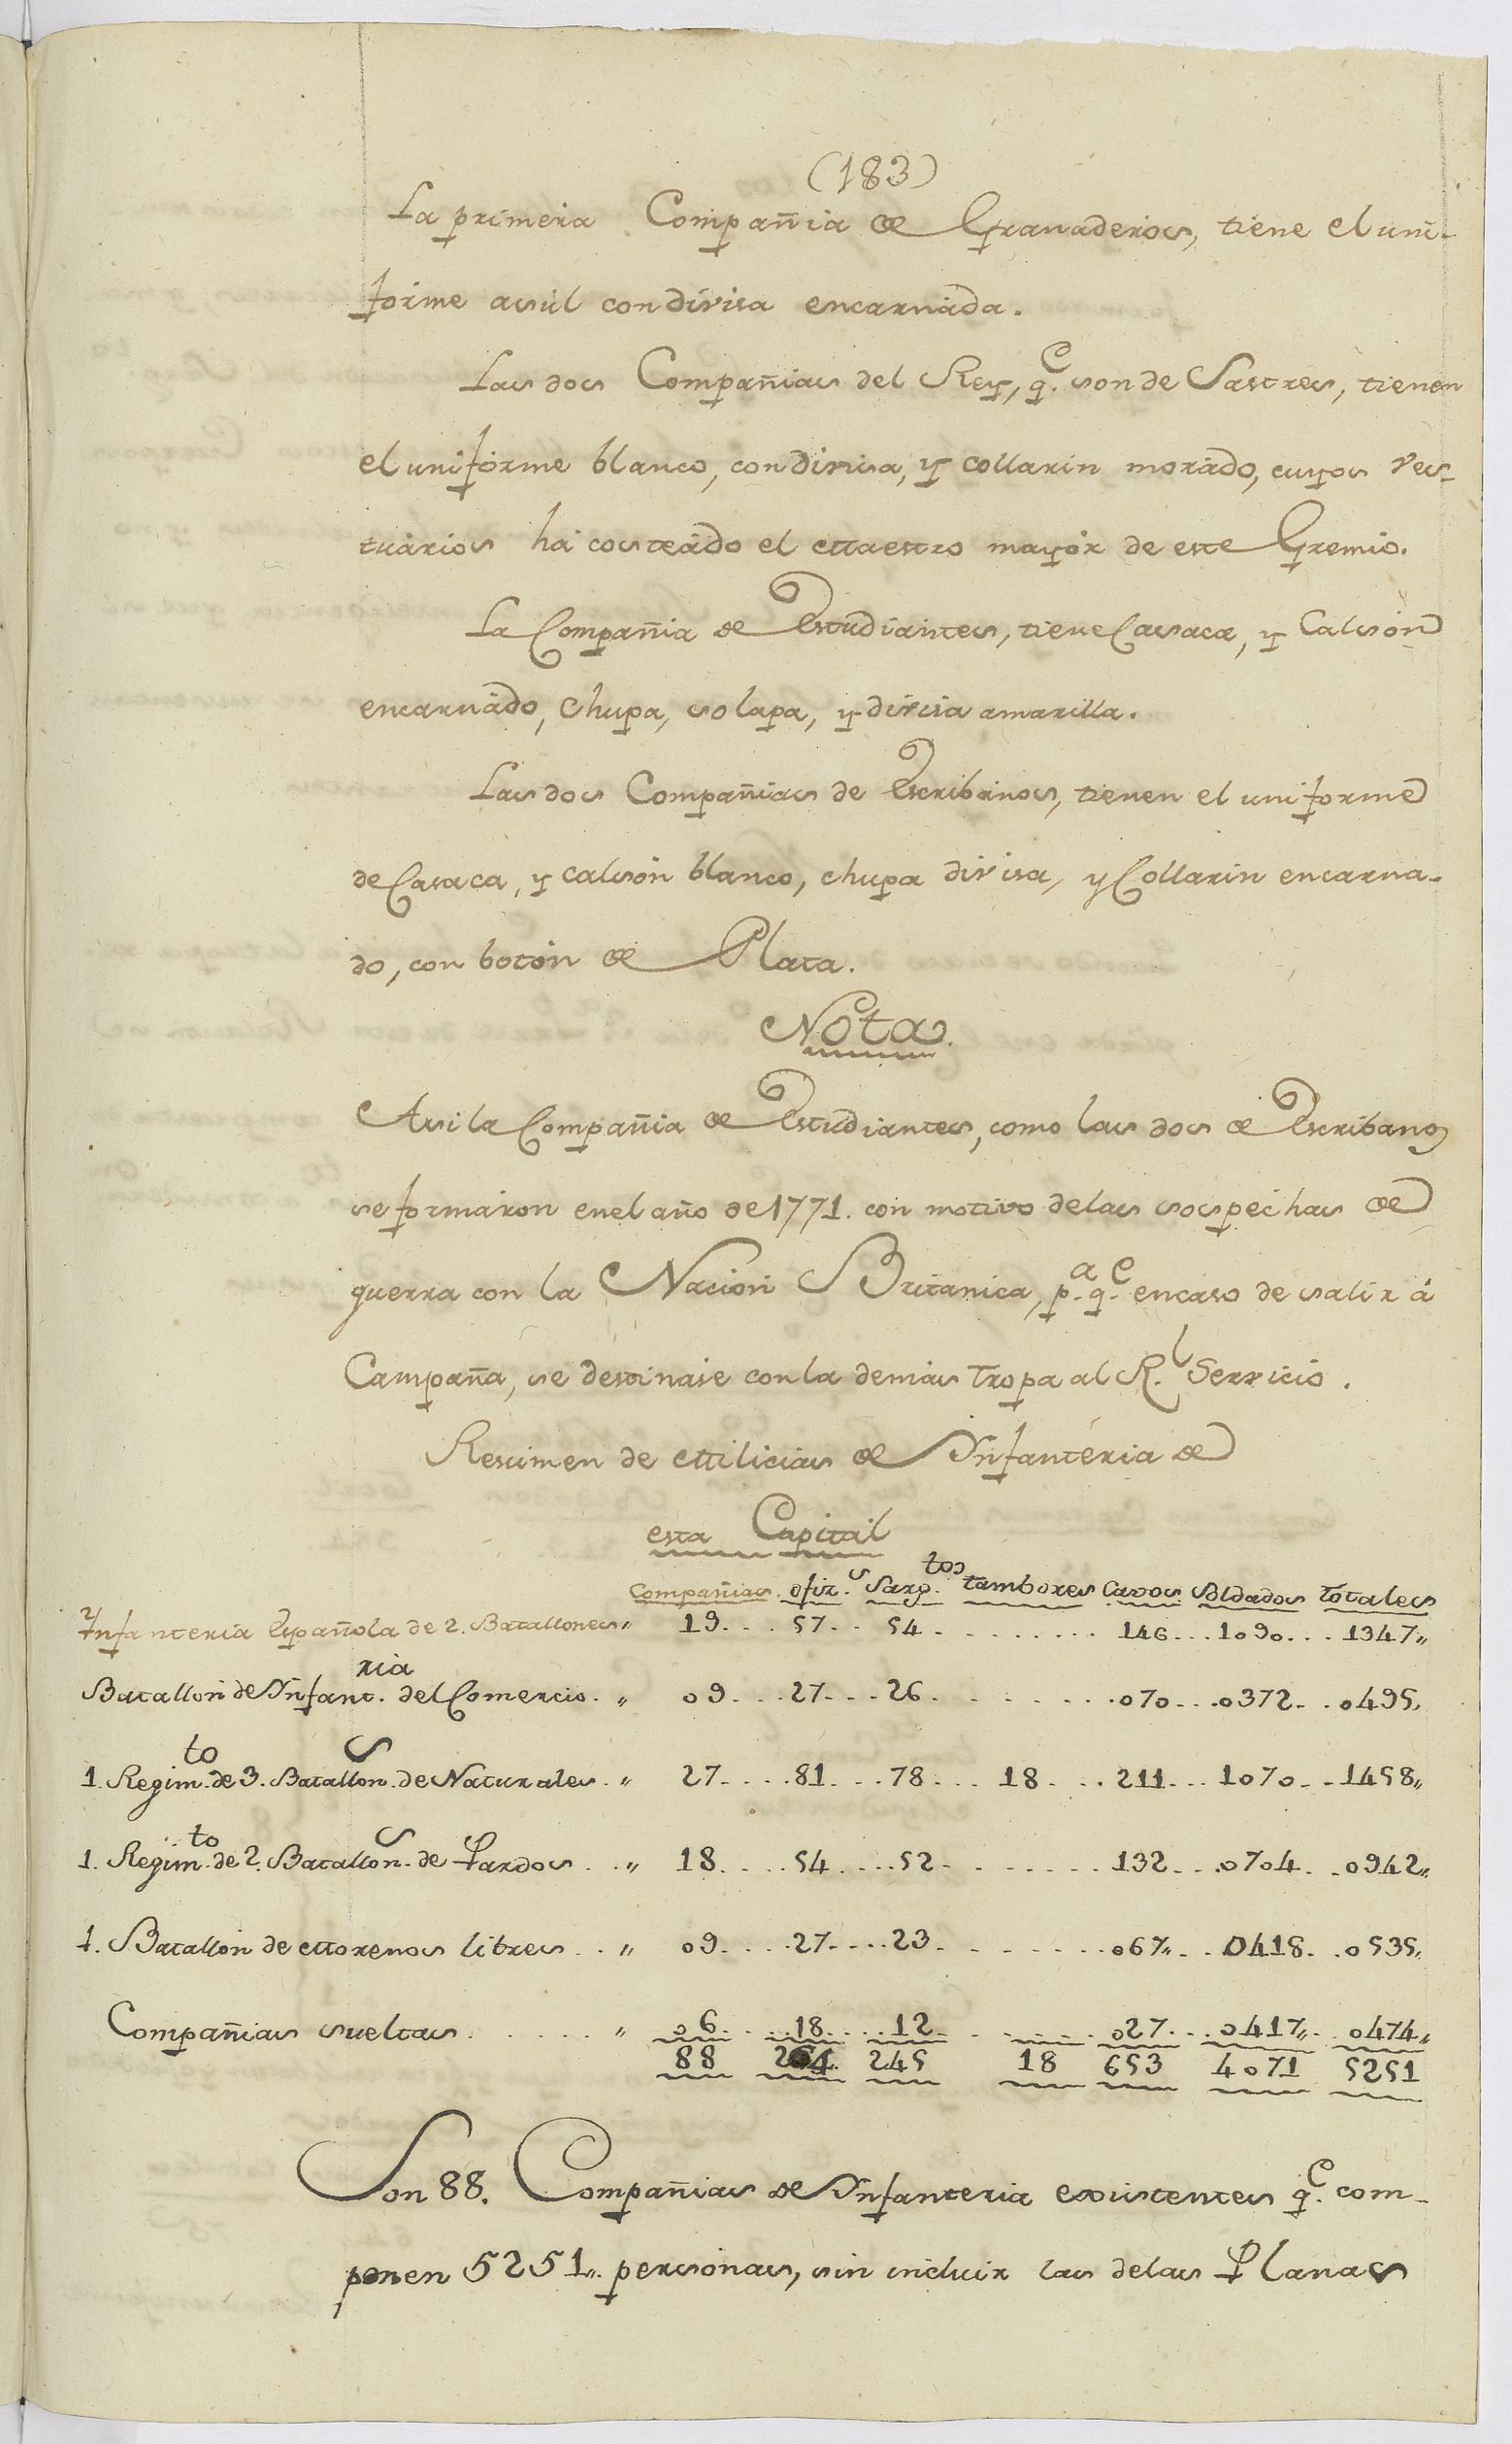 (183)
La primera Compañia de Granaderos, tiene el uni-
forme asúl con divisa encarnáda.
Las dos Compañias del Rey, q.e son de Sastres, tienen
el uniforme blanco, con divisa, y collarin morádo, cuyos ves-
tuários há costeádo el Maestro mayór de este Gremio.
La Compañia de Estudiantes, tiene Casaca, y Calsón
encarnádo, Chupa, solapa, y divisa amarilla.
Las dos Compañias de Escribános, tienen el uniforme
de Casaca, y calsón blanco, chupa divisa, y Collarin encarna-
do, con botón de Plata.
Nota.
Asi la Compañia de Estudiantes, como las dos de Escribanos
se formáron en el año de 1771. con motivo de las sospechas de
guerra con la Nación Británica, p.a q.e en caso de salir á
Campaña, se destinase con la demás Tropa al R.l Servicio.
Resúmen de Milicias de Infantéria de
esta Capital
Compañias. ofiz.s Sarg.tos tambores Cavos Soldados totales
Infanteria Española de 2. Batallones " 19... 57... 54......... 146... 1090... 1347"
Batallón de Infant.ria del Comercio. " 09... 27... 26......... 070... 0372... 0495"
1. Regim.to de 3. Batallon.s de Naturales.. " 27.... 81... 78... 18... 211... 1070... 1458"
1. Regim.to de 2. Batallon.s de Pardos... " 18.... 54.... 52........ 132... 0704... 0942"
1. Batallón de Morenos libres... " 09.... 27.... 23........ 067"... 0418... 0535"
Compañias sueltas...... " 06... 18.... 12........ 027... 0417"... 0474"
88 264 245 18 653 4071 5251
Son 88. Compañias de Infanteria existentes q.e com-
ponen 5251". personas, sin incluir las de las Planas